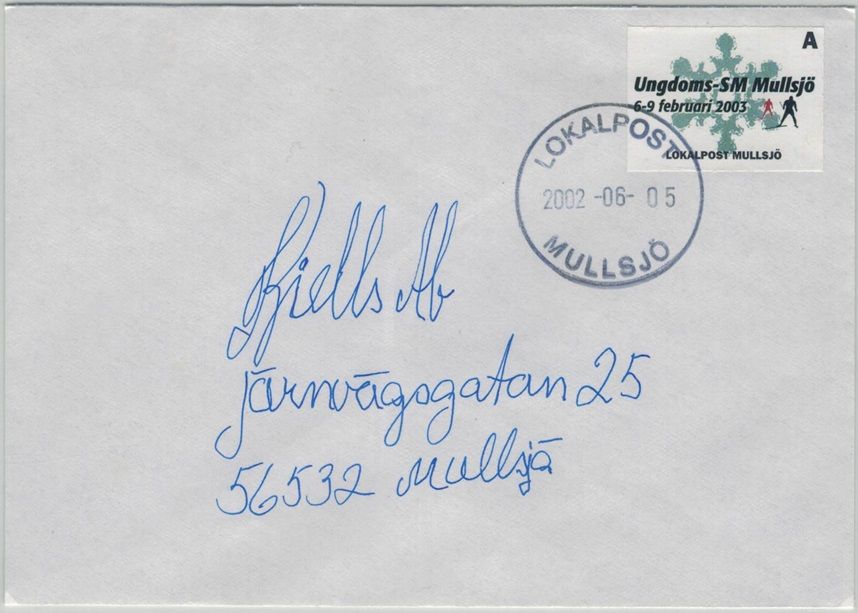 A
Ungdoms-SM Mullsjö
6-9 februari 2003
LOKALPOST MULLSJÖ
LOKALPOST
2002 -06- 05
MULLSJÖ
Kjells Ab
Järnvāgsgatan 25
56532 Mullsjō